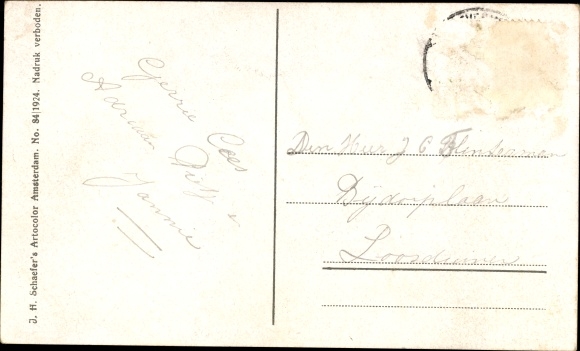 J. H. Schaefer's Artocolor Amsterdam. No. 84|1924. Nadruk verboden.
Gerrie Cees
Adriaan Pietje
Jannie
Den Heer J C
Bijdorplaan
Loosduinen